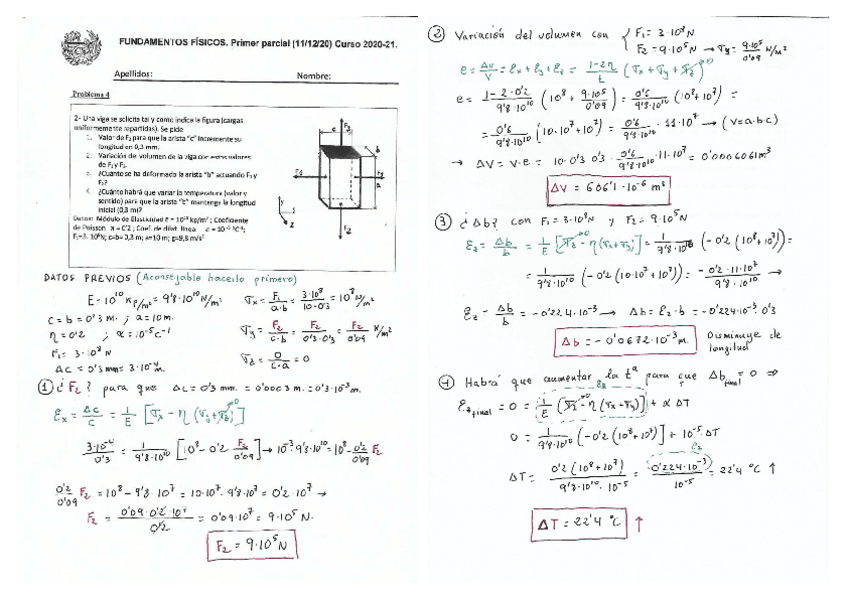 FUNDAMENTOS FÍSICOS. Primer parcial (11/12/20) Curso 2020-21.
Apellidos: Nombre:
Problema 4
2- Una viga se solicita tal y como indica la figura (cargas
uniformemente repartidas). Se pide
1. Valor de F₂ para que la arista "c" incremente su
longitud en 0,3 mm.
2. Variación de volumen de la viga con estos valores
de F₁ y F₂.
3. ¿Cuánto se ha deformado la arista "b" actuando F₁ y
F₂?
4. ¿Cuánto habrá que variar la temperatura (valor y
sentido) para que la arista "b" mantenga la longitud
inicial (0,3 m)?
Datos: Módulo de Elasticidad E = 10¹⁰ kp/m²; Coeficiente
de Poisson = 0'2; Coef. de dilat. lineal = 10⁻⁵ ºC⁻¹;
F₁=3. 10⁸N; c=b= 0,3 m; a=10 m; g=9,8 m/s²
DATOS PREVIOS (Aconsejable hacerlo primero)
E = 10¹⁰ Kp/m² = 9'8·10¹⁰ N/m²
c = b = 0'3 m. ; a = 10 m.
η = 0'2 ; α = 10⁻⁵ c⁻¹
F₁ = 3·10⁸ N
Δc = 0'3 mm = 3·10⁻⁴ m.
σx = F₁/(a·b) = 3·10⁸/(10·0'3) = 10⁸ N/m²
σy = F₂/(c·b) = F₂/(0'3·0'3) = F₂/0'09 N/m²
σz = 0/(c·a) = 0
① ¿F₂? para que Δc = 0'3 mm. = 0'0003 m. = 0'3·10⁻³m.
εx = Δc/c = 1/E [σx - η (σy + σz)] →0
3·10⁻⁴/0'3 = 1/(9'8·10¹⁰) [10⁸ - 0'2 F₂/0'09] → 10⁻³·9'8·10¹⁰ = 10⁸ - 0'2/0'09 F₂
0'2/0'09 F₂ = 10⁸ - 9'8·10⁷ = 10·10⁷ - 9'8·10⁷ = 0'2·10⁷ →
F₂ = 0'09·0'2·10⁷/0'2 = 0'09·10⁷ = 9·10⁵ N.
F₂ = 9·10⁵ N
② Variación del volumen con { F₁ = 3·10⁸N
F₂ = 9·10⁵N → σy = 9·10⁵/0'09 N/m²
e = ΔV/V = εx + εy + εz = (1-2η)/E (σx + σy + σz) →0
e = (1-2·0'2)/(9'8·10¹⁰) (10⁸ + 9·10⁵/0'09) = 0'6/(9'8·10¹⁰) (10⁸ + 10⁷) =
= 0'6/(9'8·10¹⁰) (10·10⁷ + 10⁷) = 0'6/(9'8·10¹⁰) · 11·10⁷ → (V = a·b·c)
→ ΔV = V·e = 10·0'3·0'3 · 0'6/(9'8·10¹⁰) · 11·10⁷ = 0'0006061 m³
ΔV = 606'1·10⁻⁶ m³
③ ¿Δb? con F₁ = 3·10⁸N y F₂ = 9·10⁵N
εz = Δb/b = 1/E [σz - η (σx + σy)] = 1/(9'8·10¹⁰) (-0'2 (10⁸ + 10⁷)) =
= 1/(9'8·10¹⁰) (-0'2 (10·10⁷ + 10⁷)) = -0'2·11·10⁷/(9'8·10¹⁰) →
εz = Δb/b = -0'224·10⁻³ → Δb = εz·b = -0'224·10⁻³·0'3
Δb = -0'0672·10⁻³ m. Disminuye de
longitud
④ Habrá que aumentar la tª para que Δb final = 0 ⇒
εz final = 0 = 1/E [σz - η (σx - σy)] + α ΔT
0 = 1/(9'8·10¹⁰) (-0'2 (10⁸ + 10⁷)] + 10⁻⁵ ΔT
ΔT = 0'2 (10⁸ + 10⁷)/(9'8·10¹⁰·10⁻⁵) = 0'224·10⁻³/10⁻⁵ = 22'4 °C ↑
ΔT = 22'4 °C ↑